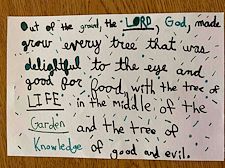 Out of the ground, the LORD, God, made
grow every tree that was
delightful to the eye and
good for food, with the tree of
LIFE in the middle of the
Garden and the tree of
Knowledge of good and evil.